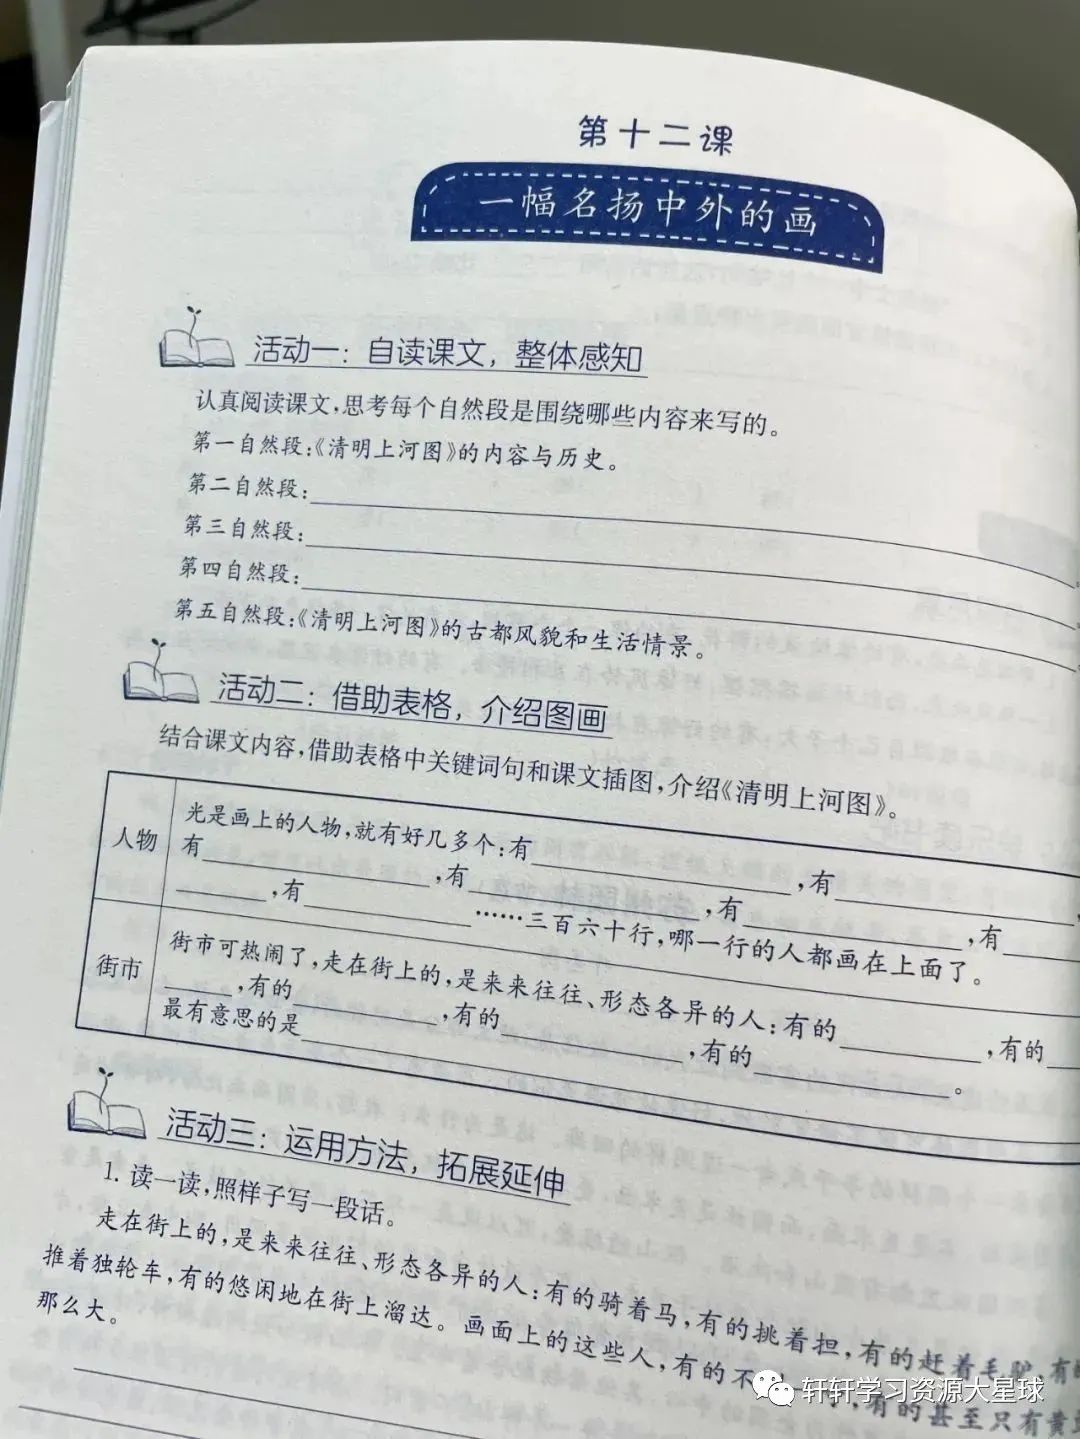 第十二课
一幅名扬中外的画
活动一：自读课文，整体感知
认真阅读课文，思考每个自然段是围绕哪些内容来写的。
第一自然段：《清明上河图》的内容与历史。
第二自然段：
第三自然段：
第四自然段：
第五自然段：《清明上河图》的古都风貌和生活情景。
活动二：借助表格，介绍图画
结合课文内容，借助表格中关键词句和课文插图，介绍《清明上河图》。
人物
光是画上的人物，就有好几多个：有，有
有，有，有，有
，有……三百六十行，哪一行的人都画在上面了。
街市
街市可热闹了，走在街上的，是来来往往、形态各异的人：有的，有的
，有的，有的，有的。
最有意思的是
活动三：运用方法，拓展延伸
1. 读一读，照样子写一段话。
走在街上的，是来来往往、形态各异的人：有的骑着马，有的挑着担，有的赶着毛驴，有的
推着独轮车，有的悠闲地在街上溜达。画面上的这些人，有的不，有的甚至只有黄豆
那么大。
轩轩学习资源大星球